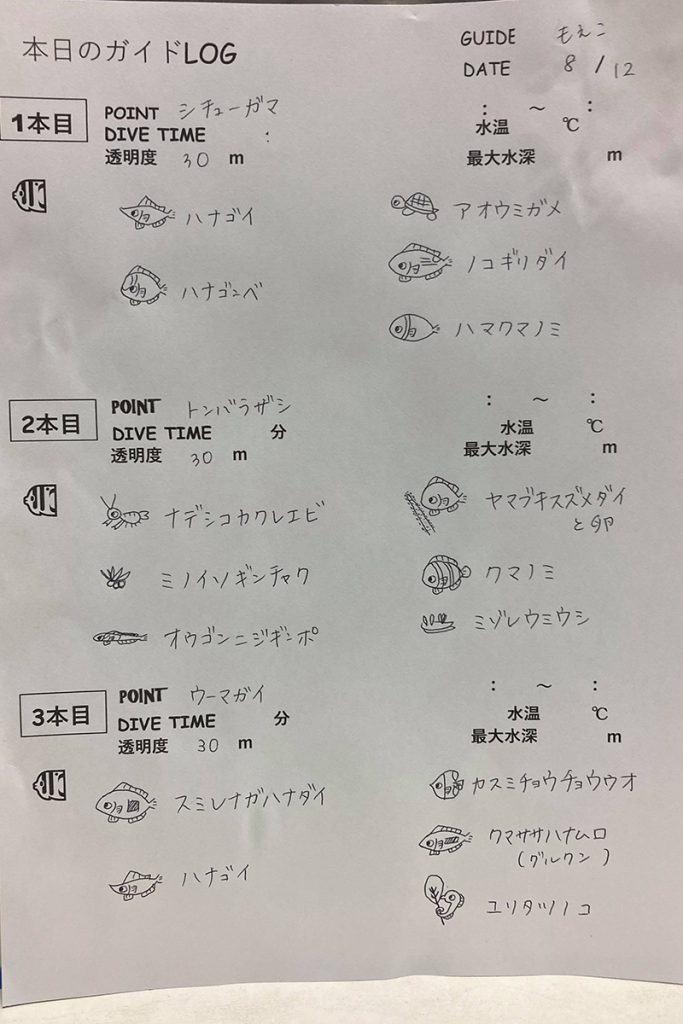 本日のガイドLOG
GUIDE もえこ
DATE 8/12
1本目
POINT シチューガマ
: ～ :
DIVE TIME :
水温 ℃
透明度 30 m
最大水深 m
ハナゴイ
アオウミガメ
ノコギリダイ
ハナゴンベ
ハマクマノミ
2本目
POINT トンバラザシ
: ～ :
DIVE TIME 分
水温 ℃
透明度 30 m
最大水深 m
ナデシコカクレエビ
ヤマブキスズメダイ
と卵
ミノイソギンチャク
クマノミ
オウゴンニジギンポ
ミゾレウミウシ
3本目
POINT ウーマガイ
: ～ :
DIVE TIME 分
水温 ℃
透明度 30 m
最大水深 m
スミレナガハナダイ
カスミチョウチョウウオ
クマササハナムロ
(グルクン)
ハナゴイ
ユリタツノコ